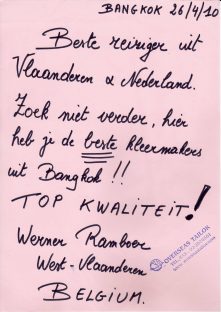 BANGKOK 26/4/10
Beste reiziger uit
Vlaanderen & Nederland.
Zoek niet verder, hier
heb je de beste kleermakers
uit Bangkok !!
TOP KWALITEIT!
Werner Ramboer
West-Vlaanderen
BELGIUM.
OVERSEAS TAILOR